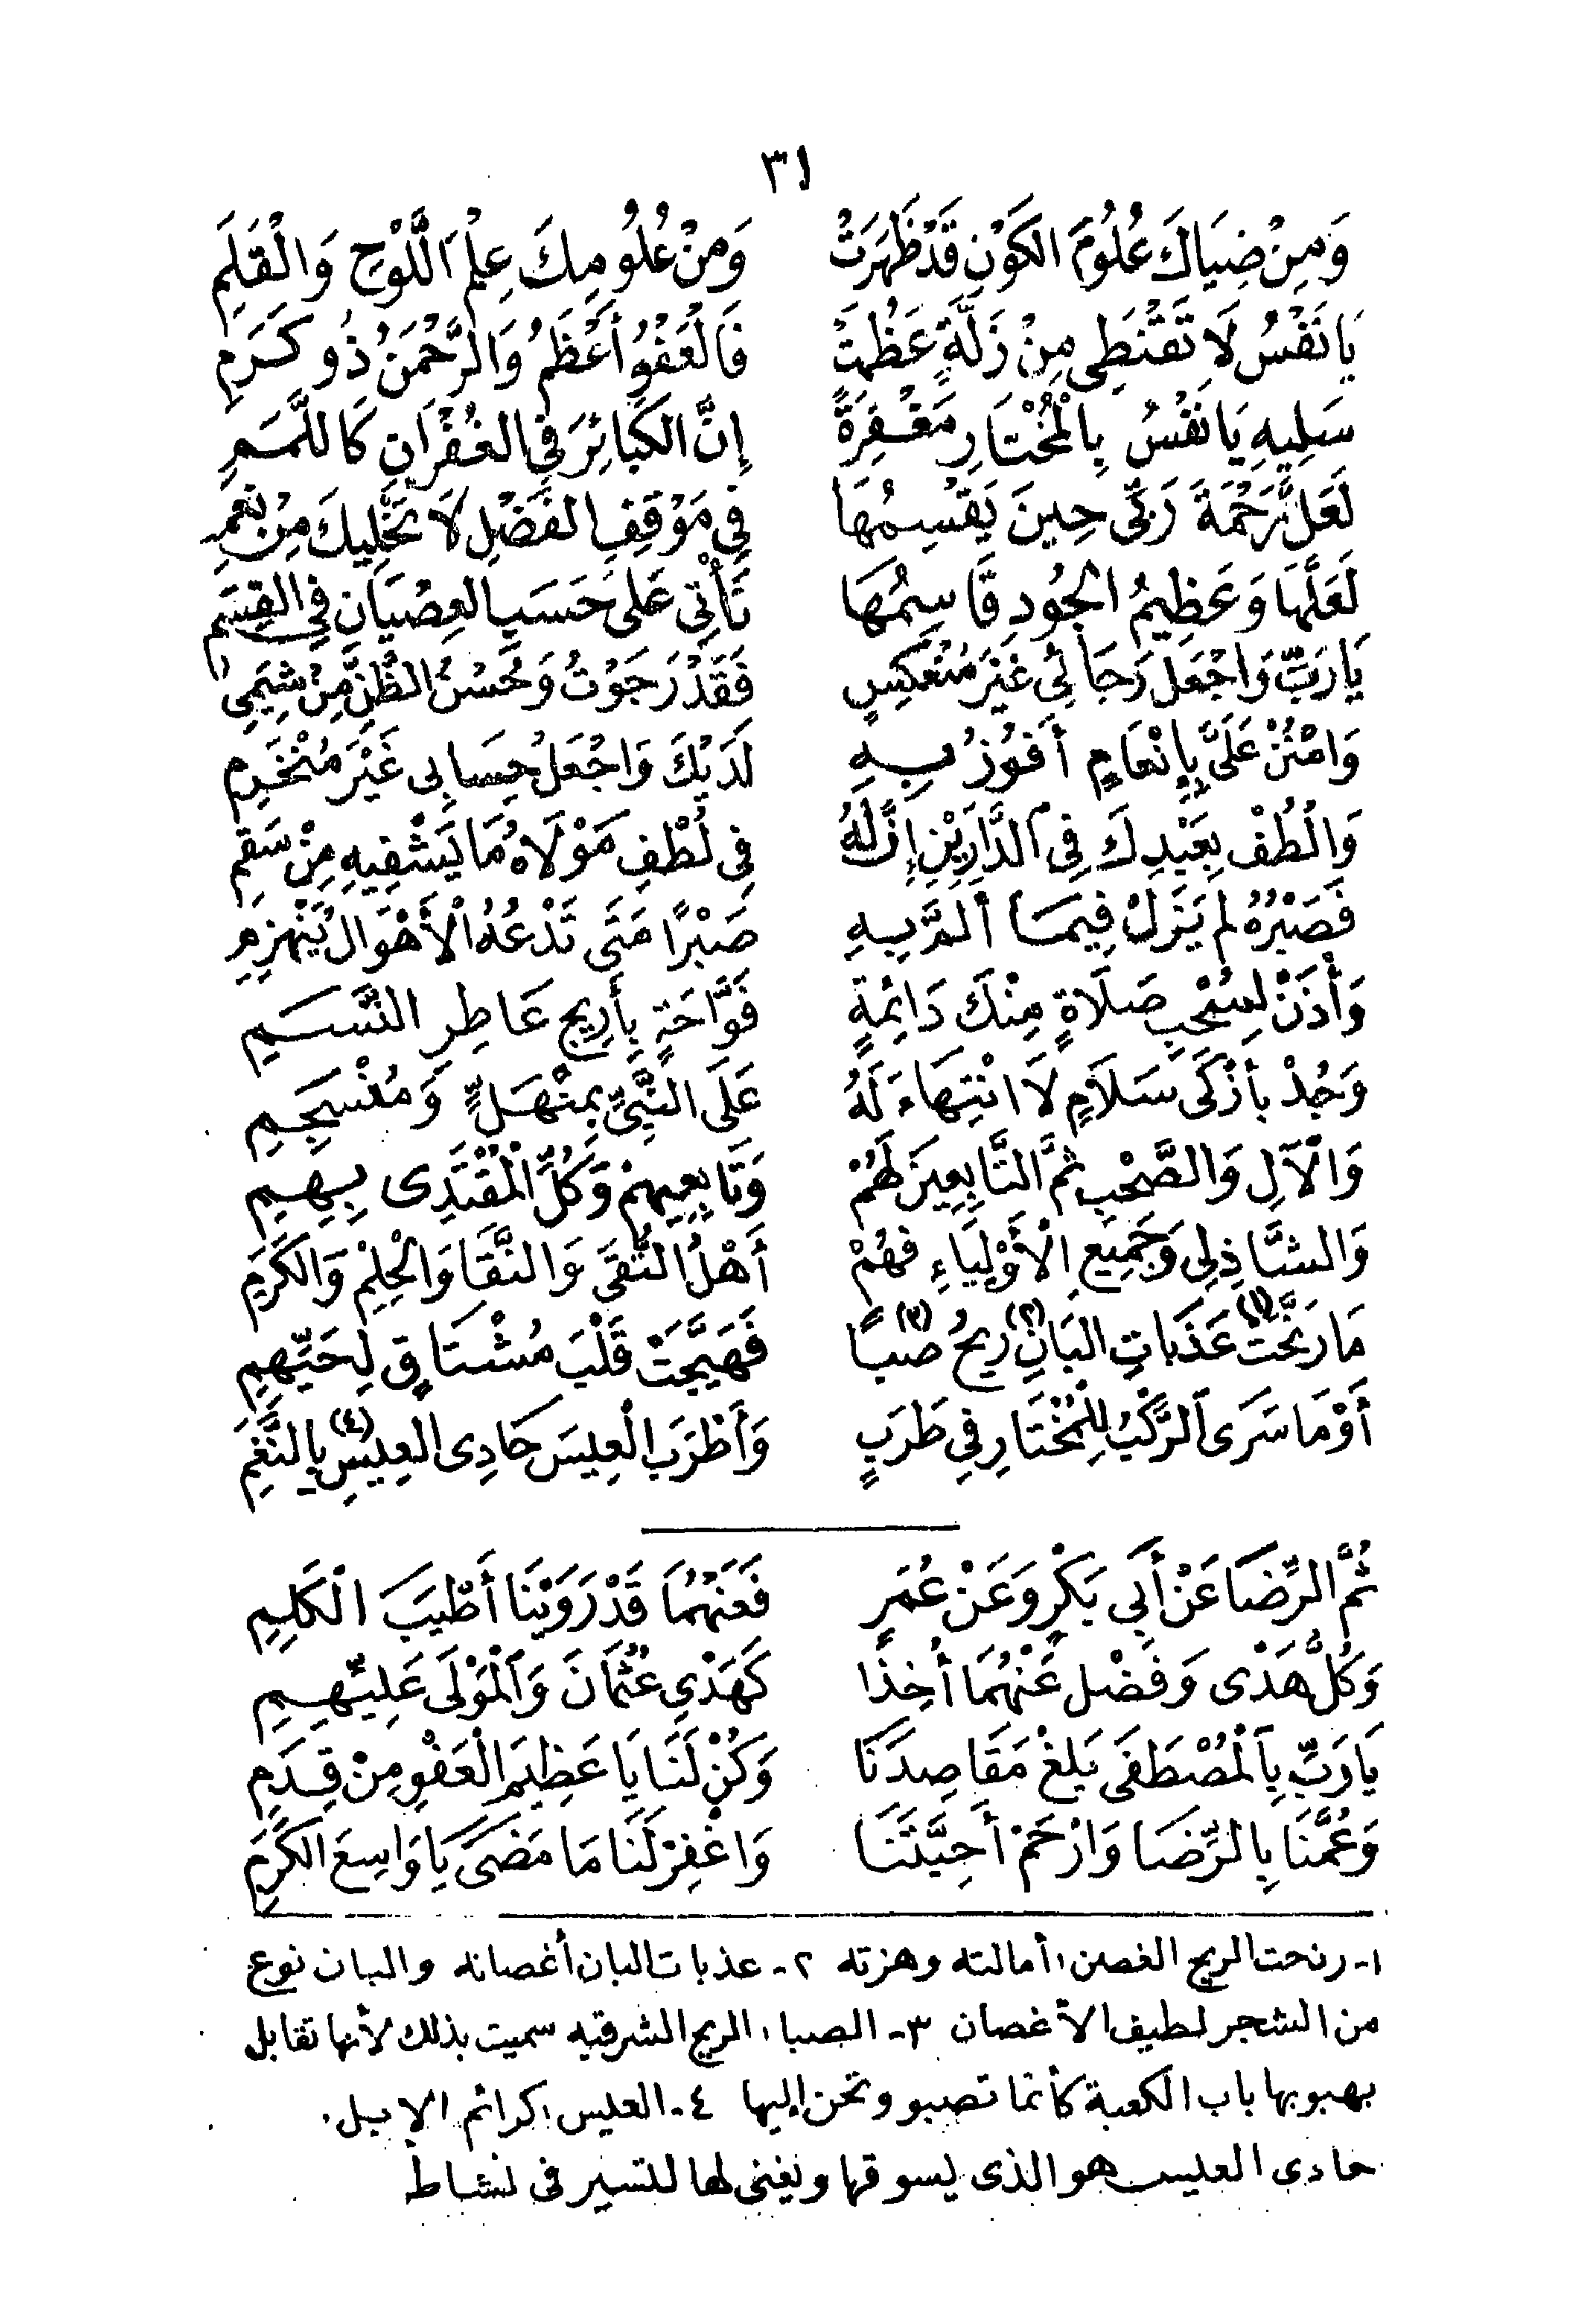 ٣١
وَمِنْ ضِيَاكَ عُلُومَ الكَوْنِ قَدْ ظَهَرَتْ وَمِنْ عُلُومِكَ عِلْمَ اللَّوْحِ وَالْقَلَمِ
يَا نَفْسُ لَا تَقْنَطِى مِنْ زَلَّةٍ عَظُمَتْ فَالْعَفْوُ أَعْظَمُ وَالرَّحْمَنُ ذُو كَرَمِ
سَلِيهِ يَا نَفْسُ بِالْمُخْتَارِ مَغْفِرَةً إِنَّ الكَبَائِرَ فِي الغُفْرَانِ كَاللَّمَمِ
لَعَلَّ رَحْمَةَ رَبِّى حِينَ يَقْسِمُهَا فِي مَوْقِفِ الفَضْلِ لَا تَخْلِيكَ مِنْ نِعَمِ
لَعَلَّهَا وَعَظِيمُ الجُودِ قَاسِمُهَا تَأْتِى عَلَى حَسَبِ العِصْيَانِ فِي القِسَمِ
يَا رَبِّ وَاجْعَلْ رَجَائِي غَيْرَ مُنْعَكِسٍ فَقَدْ رَجَوْتُ وَحُسْنُ الظَّنِّ مِنْ شِيَمِى
وَامْنُنْ عَلَىَّ بِإِنْعَامٍ أَفُوزُ بِهِ لَدَيْكَ وَاجْعَلْ حِسَابِى غَيْرَ مُنْخَرِمِ
وَالْطُفْ بِعَبْدِكَ فِي الدَّارَيْنِ إِنَّ لَهُ فِي لُطْفِ مَوْلَاهُ مَا يَشْفِيهِ مِنْ سَقَمِ
فَصَبْرُهُ لم يَزَلْ فِيمَا أَلَمَّ بِهِ صَبْرًا مَتَى تَدْعُهُ الْأَهْوَالُ يَنْهَزِمِ
وَأْذَنْ لِسُحْبِ صَلَاةٍ مِنْكَ دَائِمَةٍ فَوَّاحَةٍ بِأَرِيجٍ عَاطِرِ النَّسَمِ
وَجُدْ بِأَزْكَى سَلَامٍ لَا انْتِهَاءَ لَهُ عَلَى النَّبِىِّ بِمنْهَلٍّ وَمُنْسَجِمِ
وَالْآلِ وَالصَّحْبِ ثُمَّ التَّابِعِينَ لَهُمْ وَتَابِعِيهِمْ وَكُلِّ الْمُقْتَدِى بِهِمِ
وَالشَّاذِلِى وَجَمِيعِ الْأَوْلِيَاءِ فَهُمْ أَهْلُ التُّقَى وَالنَّقَا وَالْحِلِمْ وَالكَرَمِ
مَا رَنَّحَتْ (١) عَذَبَاتِ البَانِ (٢) رِيحُ صبًا (٣) فَهَيَّجَتْ قَلْبَ مُشْتَاقٍ لِحَيِّهِمِ
أَوْ مَا سَرَى الرَّكْبُ لِلْمُخْتَارِ فِي طَرَبٍ وَأَطْرَبَ الْعِيسَ حَادِى العِيسِ (٤) بِالنَّغَمِ
ثُمَّ الرِّضَا عَنْ أَبِي بَكْرٍ وَعَنْ عُمَرٍ فَعَنْهُمَا قَدْ رَوَيْنَا أَطْيَبَ الْكَلِمِ
وَكُلُّ هَدْى وَفَضْل عَنْهُمَا أُخِذَا كَهَدْىِ عُثْمَانَ وَالْمَوْلَى عَلِيِّهِمِ
يَا رَبِّ بِالْمُصْطَفَى بَلِغْ مَقَاصِدَنَا وَكُنْ لَنَا يَا عَظِيمَ الْعَفْوِ مِنْ قِدَمِ
وَعُمَّنَا بِالرِّضَا وَارْحَمْ أَحِبَّتَنَا وَاغْفِرْ لَنَا مَا مَضَى يَا وَاسِعَ الكَرَمِ
١- رنحت الريح الغصن: أمالته وهزته ٢- عذبات البان أغصانه والبان نوع
من الشجر لطيف الأغصان ٣- الصبا: الريح الشرقيه سميت بذلك لأنها تقابل
بهبوبها باب الكعبة كأنما تصبو وتحن إليها ٤- العيس: كرائم الإبل.
حادى العيس هو الذى يسوقها ويغنى لها للتسير فى نشاط